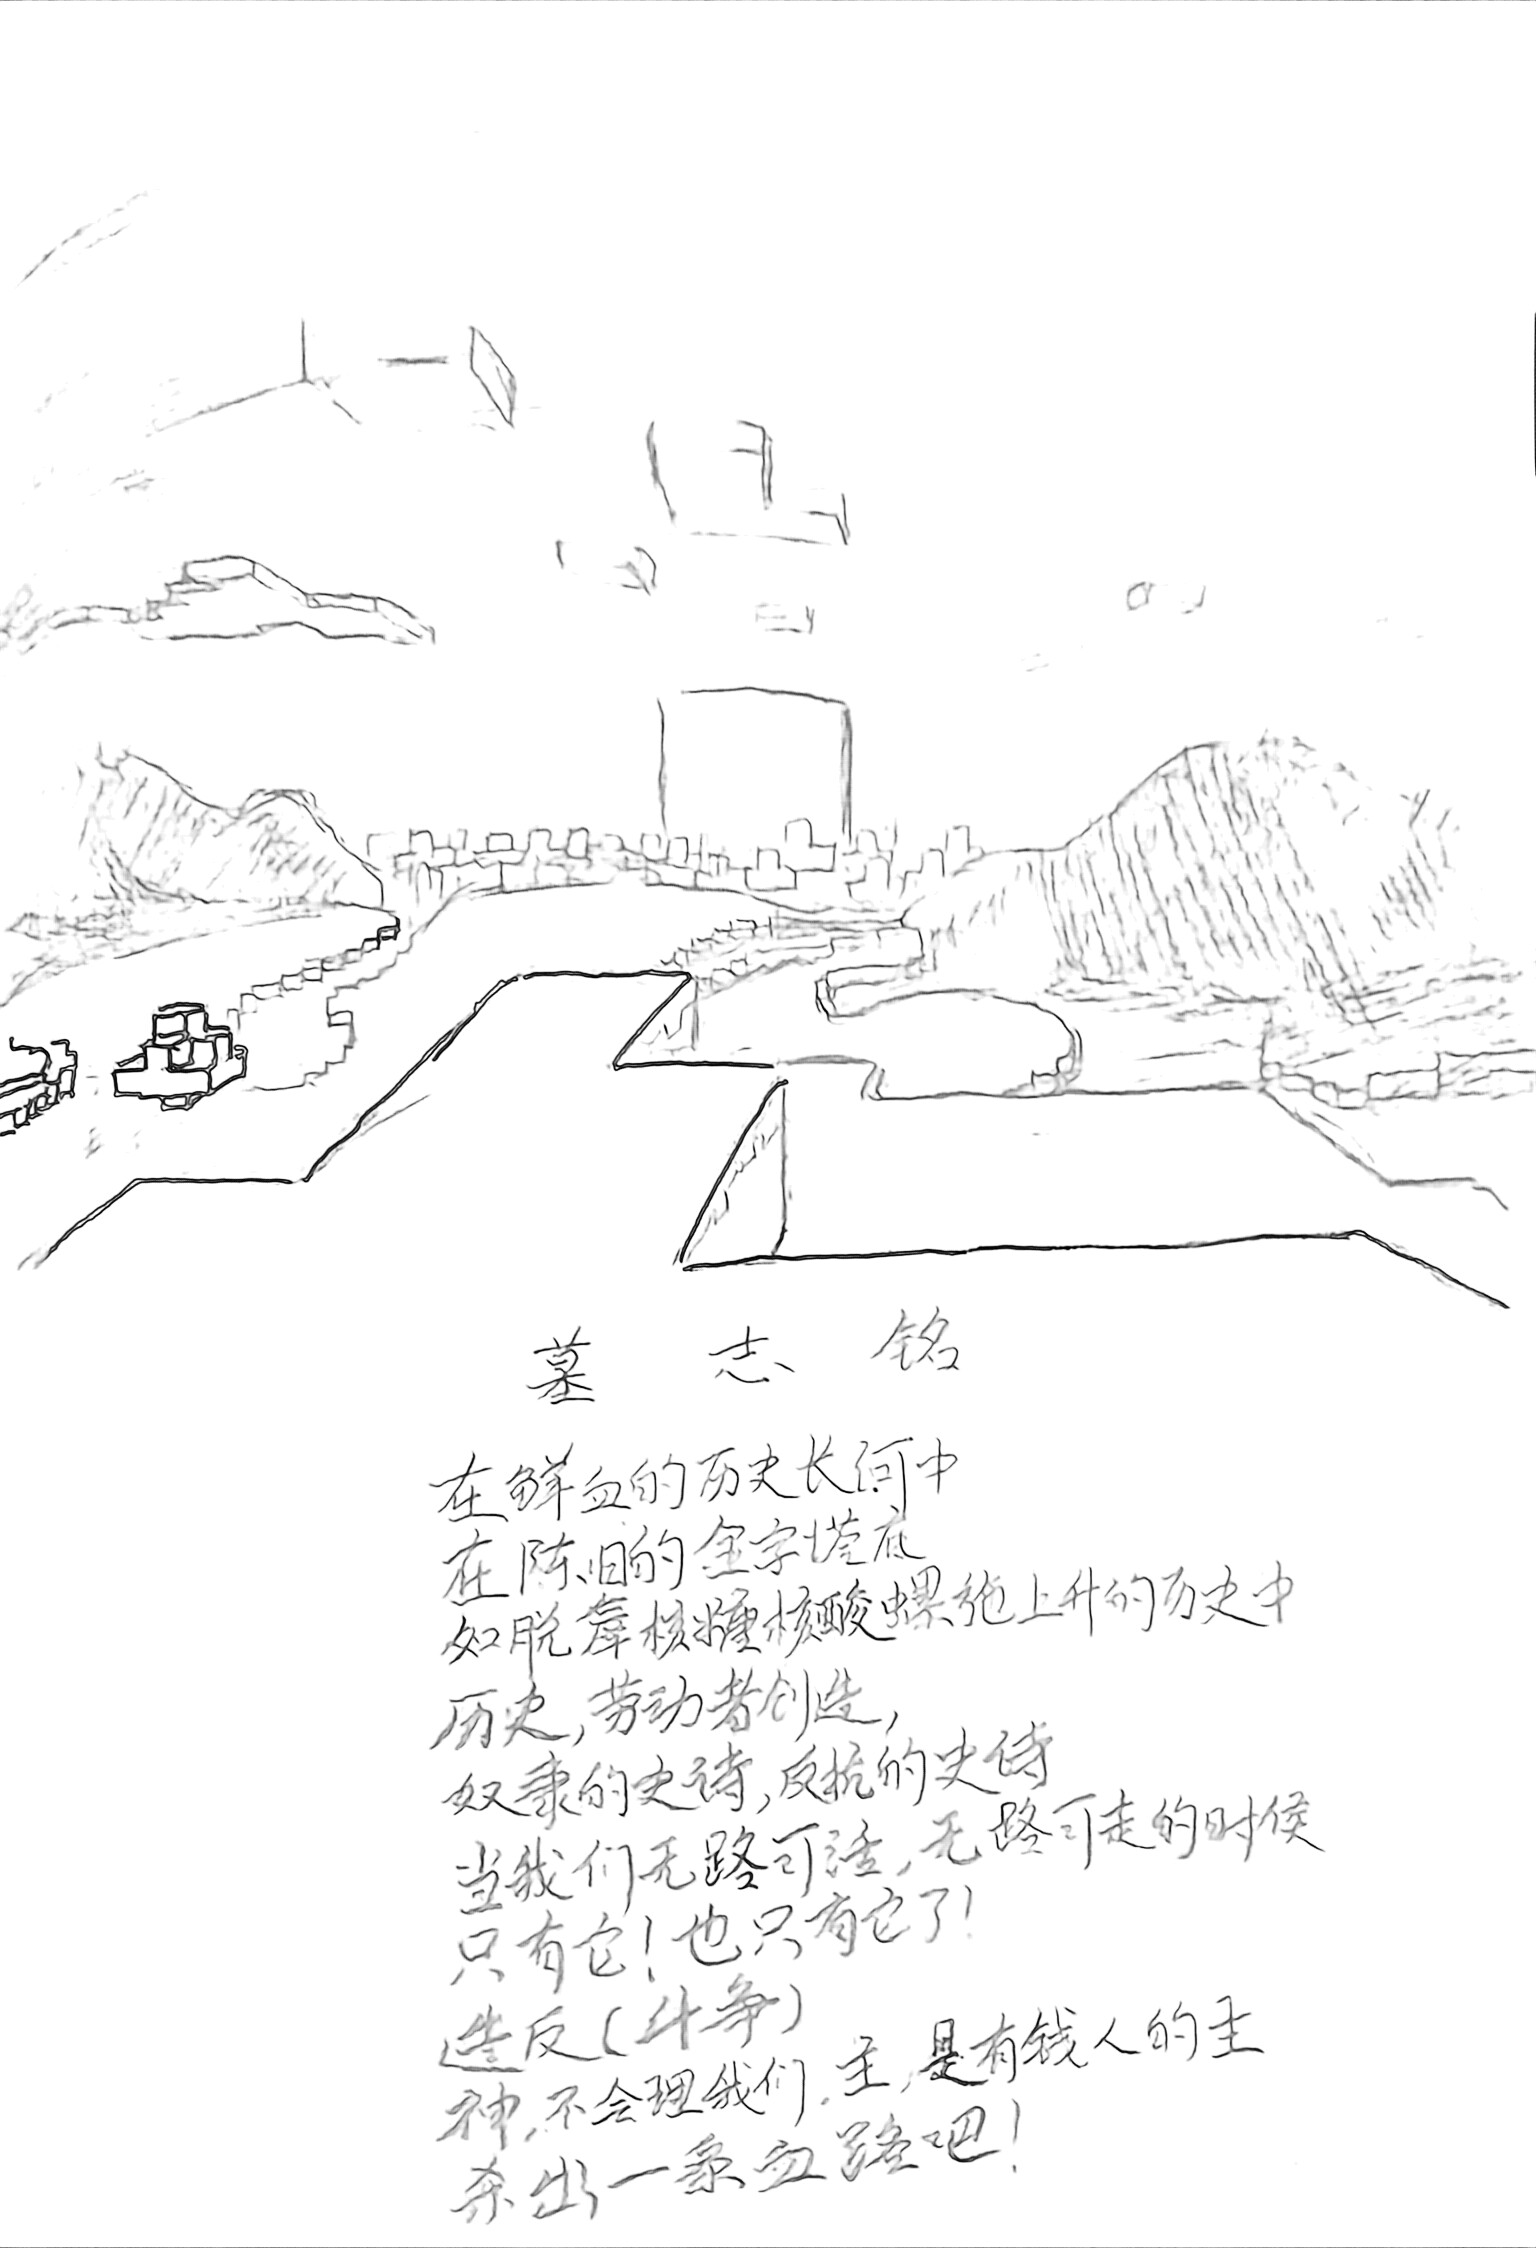 墓志铭
在鲜血的历史长河中
在陈旧的金字塔底
如脱氧核糖核酸螺旋上升的历史中
历史,劳动者创造,
奴隶的史诗,反抗的史诗
当我们无路可活,无路可走的时候
只有它!也只有它了!
造反(斗争)
神,不会理我们,主,是有钱人的主
杀出一条血路吧!